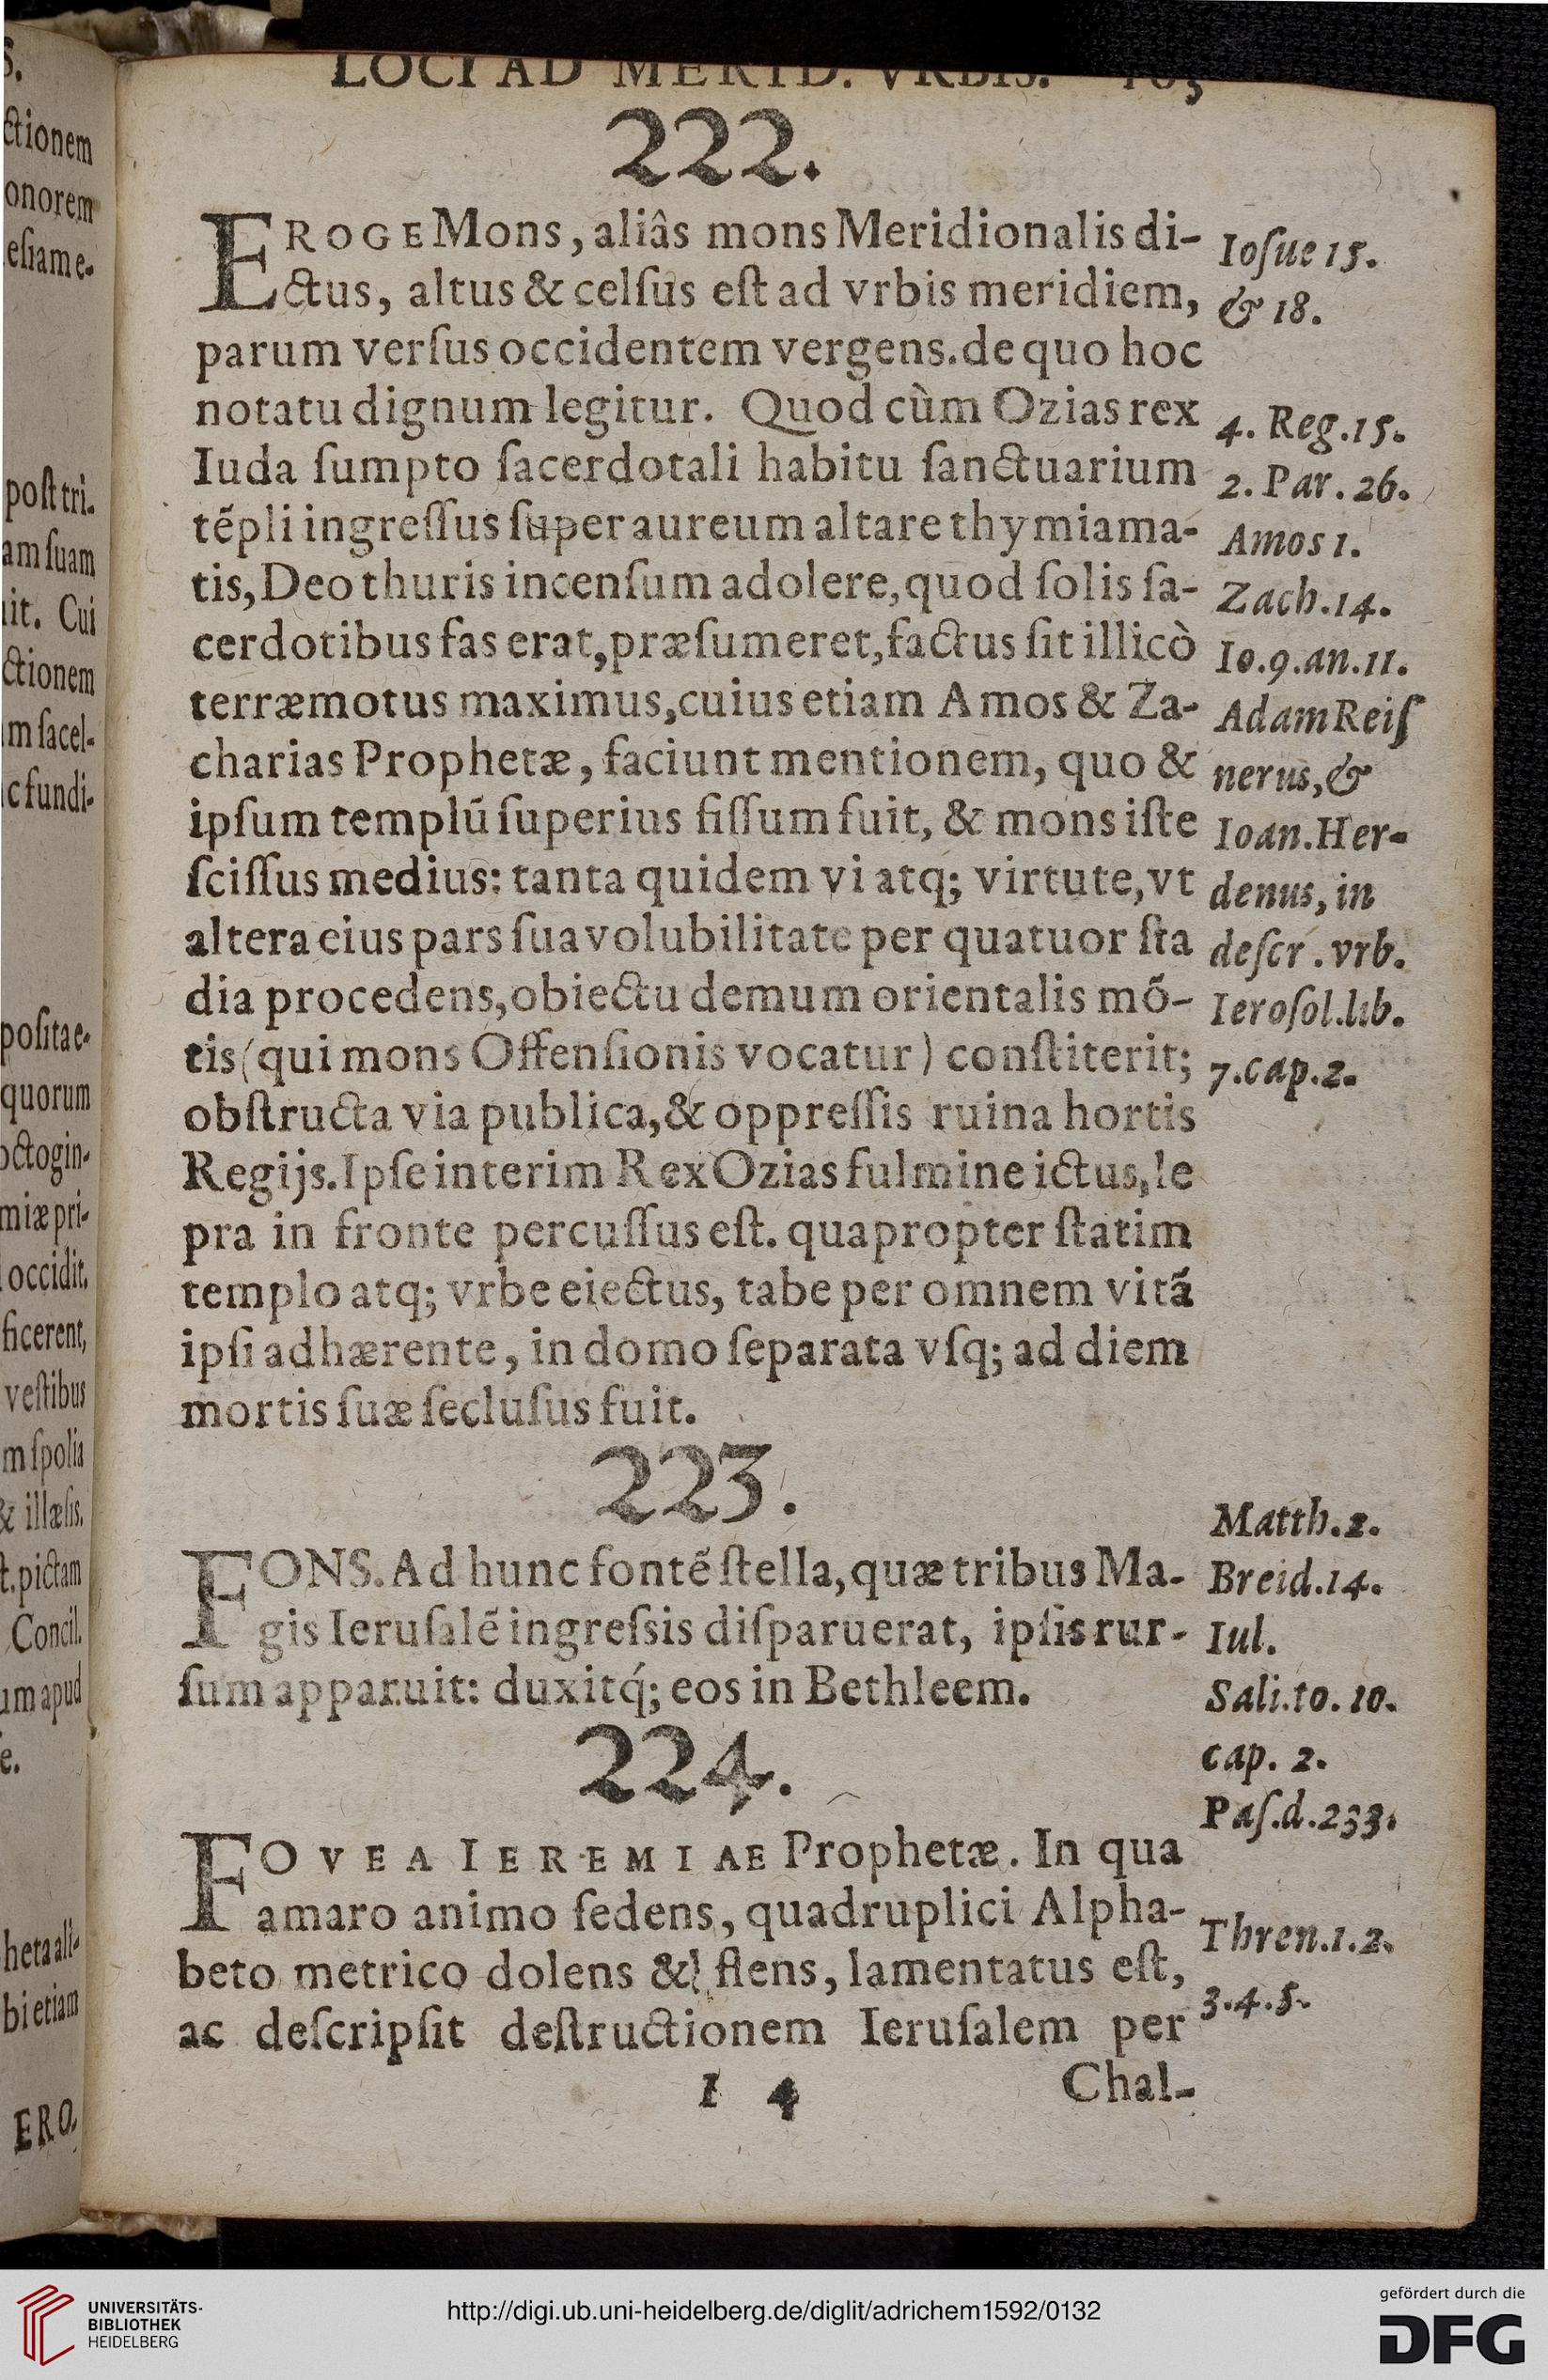 S.
ctionem
onorem
esiam e-
post tri-
am suam
uit. Cui
ctionem
m sacel-
c fundi-
posita e-
quorum
octogin-
miæ pri-
occidit.
ficerent,
vestibus
m spolia
& illæsis.
t. pictam
Concil.
um apud
e.
heta ali-
bi etiam
ERO.
LOCI AD MERID. VRBIS.
222.
EROGE Mons, aliâs mons Meridionalis di-
ctus, altus & celſus eſt ad vrbis meridiem,
parum verſus occidentem vergens. de quo hoc
notatu dignum legitur. Quod cùm Ozias rex
Iuda ſumpto ſacerdotali habitu ſanctuarium
tẽpli ingreſſus ſuper aureum altare thymiama-
tis, Deo thuris incenſum adolere, quod ſolis ſa-
cerdotibus fas erat, præſumeret, factus ſit illicò
terræmotus maximus, cuius etiam Amos & Za-
charias Prophetæ, faciunt mentionem, quo &
ipſum templũ ſuperius fiſſum fuit, & mons iſte
ſciſſus medius: tanta quidem vi atq; virtute, vt
altera eius pars ſua volubilitate per quatuor ſta
dia procedens, obiectu demum orientalis mõ-
tis (qui mons Offenſionis vocatur) conſtiterit;
obſtructa via publica, & oppreſſis ruina hortis
Regijs. Ipſe interim Rex Ozias fulmine ictus, le
pra in fronte percuſſus eſt. quapropter ſtatim
templo atq; vrbe eiectus, tabe per omnem vitã
ipſi adhærente, in domo ſeparata vſq; ad diem
mortis ſuæ ſecluſus fuit.
Ioſue 15.
& 18.
4. Reg. 15.
2. Par. 26.
Amos 1.
Zach. 14.
Io. 9. an. 11.
Adam Reiſ
nerus, &
Ioan. Her-
denus, in
deſcr. vrb.
Ieroſol. lib.
7. cap. 2.
223.
FONS. Ad hunc fontẽ ſtella, quæ tribus Ma-
gis Ieruſalẽ ingreſsis diſparuerat, ipſis rur-
ſum apparuit: duxitq́; eos in Bethleem.
Matth. 2.
Breid. 14.
Iul.
Sali. to. 10.
cap. 2.
Paſ. d. 233.
224.
FOVEA IEREMIAE Prophetæ. In qua
amaro animo ſedens, quadruplici Alpha-
beto metrico dolens & flens, lamentatus eſt,
ac deſcripſit deſtructionem Ieruſalem per
Thren. 1. 2.
3. 4. 5.
I 4 Chal-
UNIVERSITÄTS-
BIBLIOTHEK
HEIDELBERG
http://digi.ub.uni-heidelberg.de/diglit/adrichem1592/0132
gefördert durch die
DFG